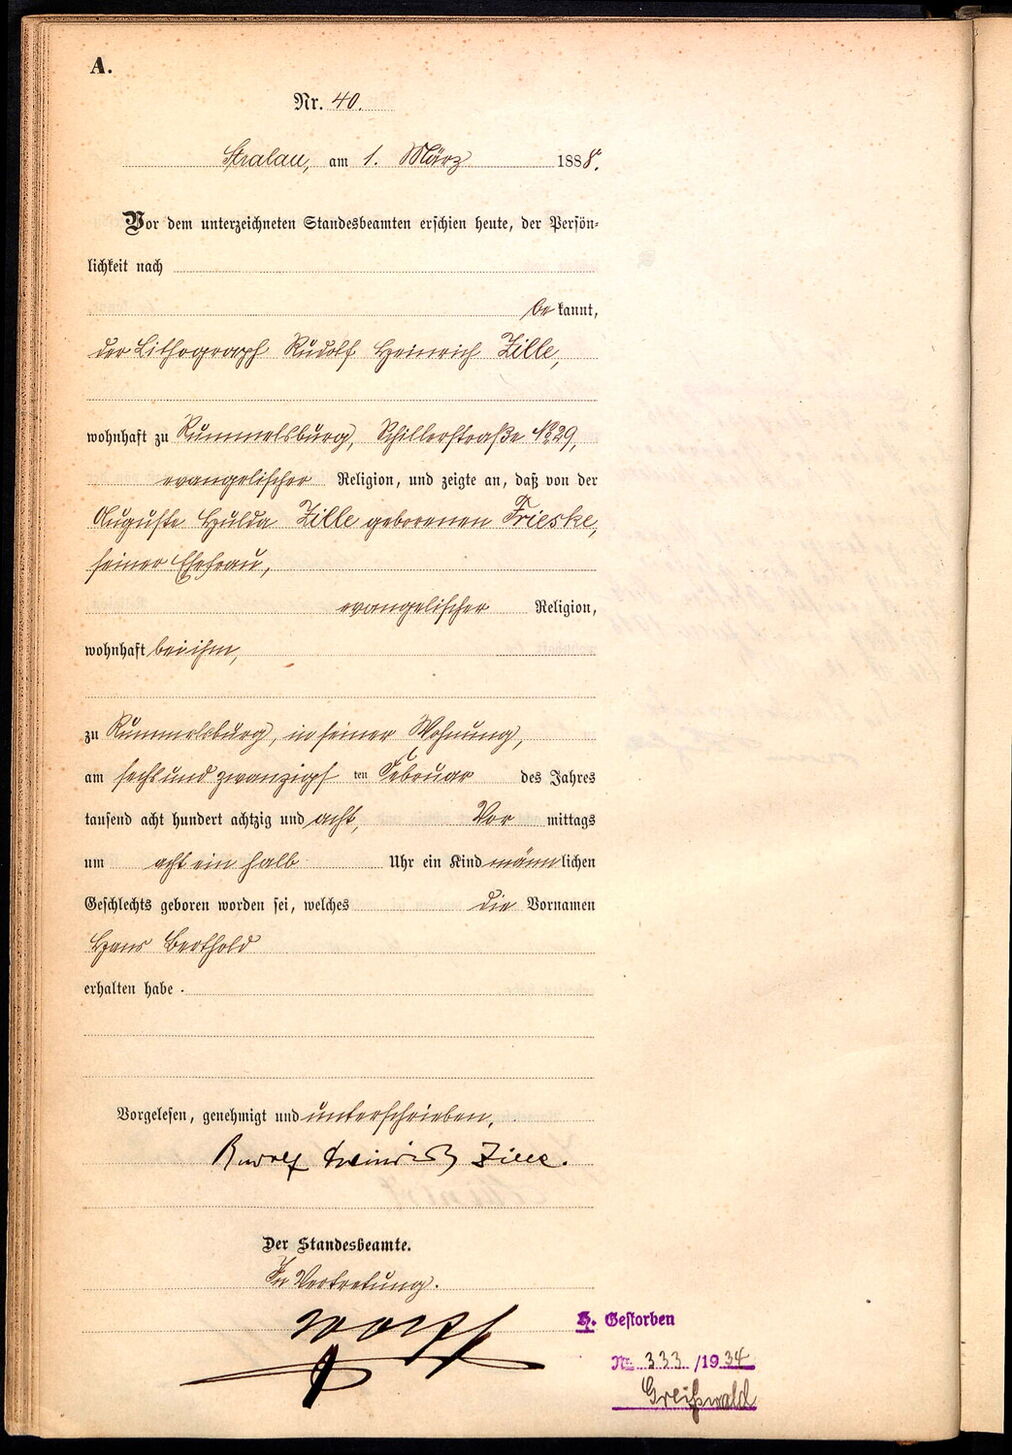 A.
Nr. 40.
Stralau, am 1. März 1888.
Vor dem unterzeichneten Standesbeamten erschien heute, der Persön-
lichkeit nach
be kannt,
der Lithograph Rudolf Heinrich Zille,
wohnhaft zu Rummelsburg, Schillerstraße No 29,
evangelischer Religion, und zeigte an, daß von der
Auguste Hulda Zille geborenen Frieske,
seiner Ehefrau,
evangelischer Religion,
wohnhaft bei ihm,
zu Rummelsburg, in seiner Wohnung,
am sechs und zwanzigs ten Februar des Jahres
tausend acht hundert achtzig und acht, Vor mittags
um acht ein halb Uhr ein Kind männ lichen
Geschlechts geboren worden sei, welches die Vornamen
Hans Berthold
erhalten habe.
Vorgelesen, genehmigt und unterschrieben.
Rudolf Heinrich Zille.
Der Standesbeamte.
In Vertretung.
H. Gestorben
Nr. 333/1934
Greifswald